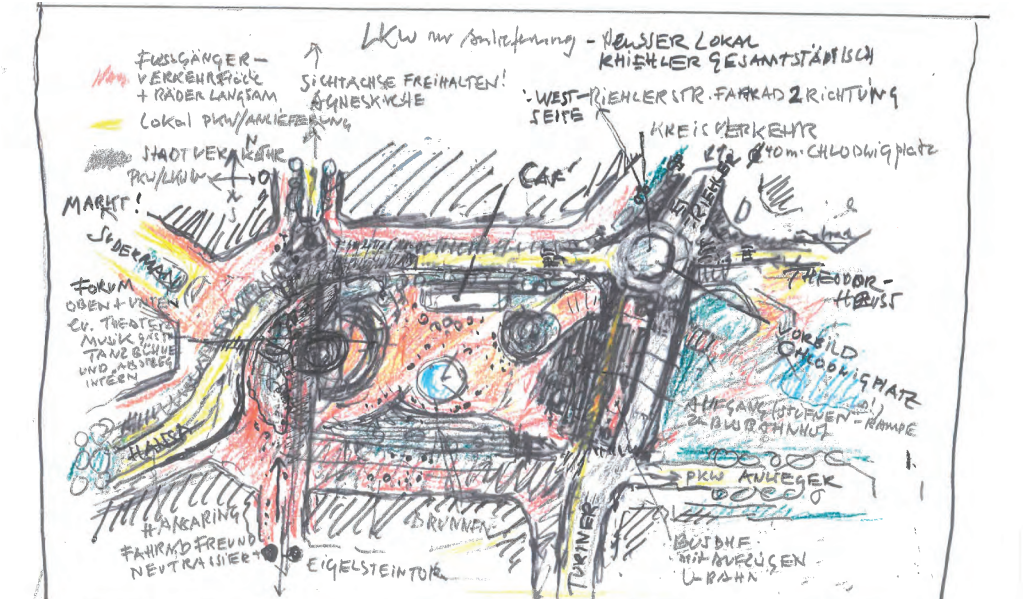 LKW nur Anlieferung - HEUSSER LOKAL
RHIEHLER GESAMTSTÄDTISCH
FUSSGÄNGER-
VERKEHRSFLÖCK
+ RÄDER LANGSAM
LOKAL PKW/ANLIEFERUNG
STADTVERKÄHR
PKW/LKW
N
O
S
SICHTACHSE FREIHALTEN!
AGNESKIRCHE
WEST-
SEITE
RIEHLERSTR. FAHRAD 2 RICHTUNG
KREISVERKEHR
Ø 40m. CHLODWIGPLATZ
RIEHLER
CAF'
MARKT!
SUDERMAN
FORUM
OBEN + UNTEN
EV. THEATER
MUSIK
TANZBÜHNE
UND ABSTIEG
INTERN
THEODOR-
HEUSS
VORBILD
CHLODWIGPLATZ
AUFGANG (STUFNEN-RAMPE
HANSA
HANSARING
FAHRRADFREUND
NEUTRASSIER
EIGELSTEINTOR
BRUNNEN
TURINER
PKW ANLIEGER
BUSBHF
MIT AUFZÜGEN
U-BAHN